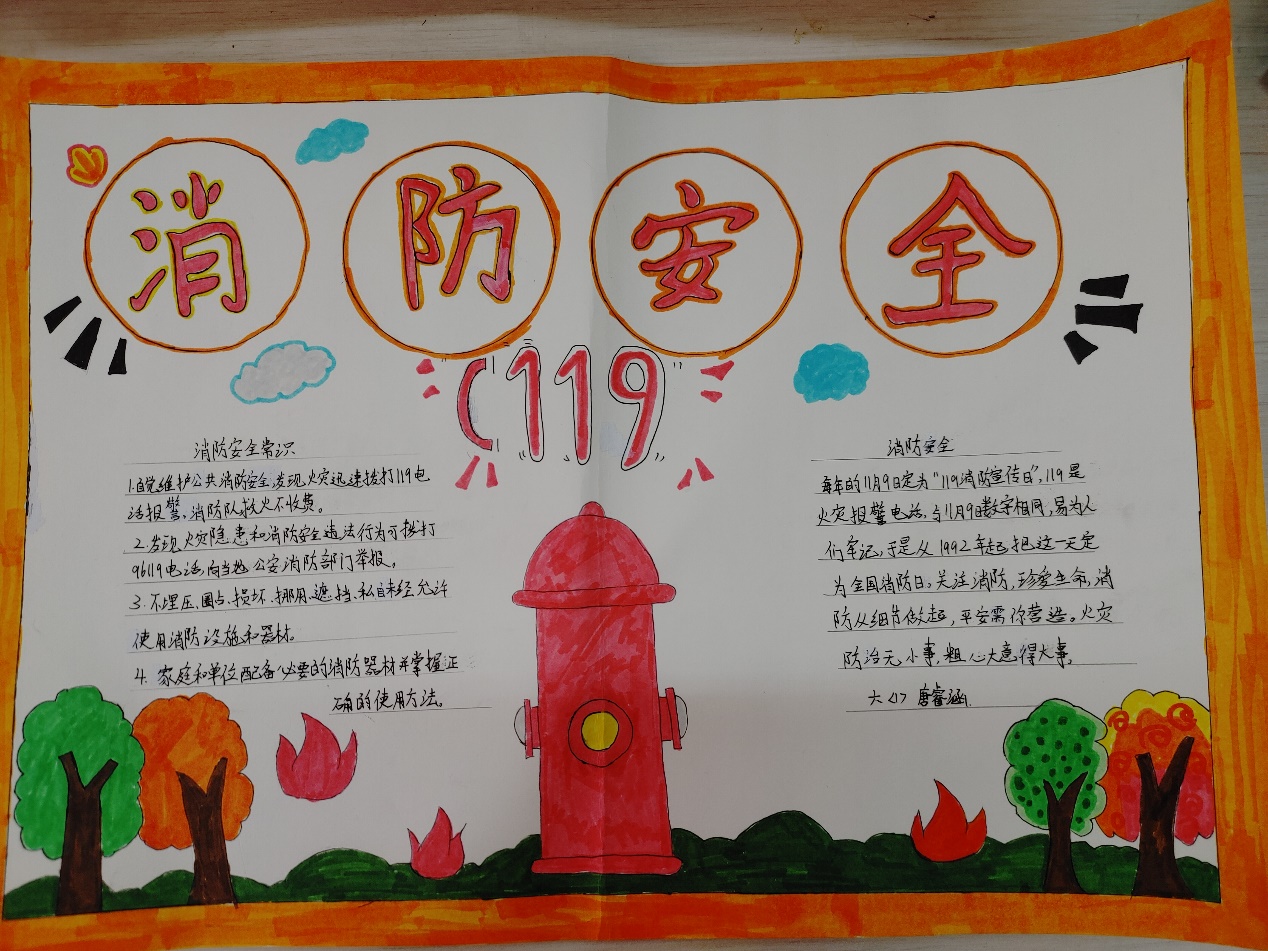 消防安全
119
消防安全常识
1.自觉维护公共消防安全发现火灾迅速拨打119电
话报警,消防队救火不收费。
2.发现火灾隐患和消防安全违法行为可拨打
96119电话,向当地公安消防部门举报。
3.不埋压、圈占、损坏、挪用、遮挡、私自未经允许
使用消防设施和器材。
4.家庭和单位配备必要的消防器材并掌握正
确的使用方法。
消防安全
每年的11月9日定为"119消防宣传日",119是
火灾报警电话,与11月9日数字相同,易为人
们牢记,于是从1992年起,把这一天定
为全国消防日。关注消防,珍爱生命,消
防从细节做起,平安需你营造。火灾
防治无小事,粗心大意得大事,
六<1> 唐睿涵